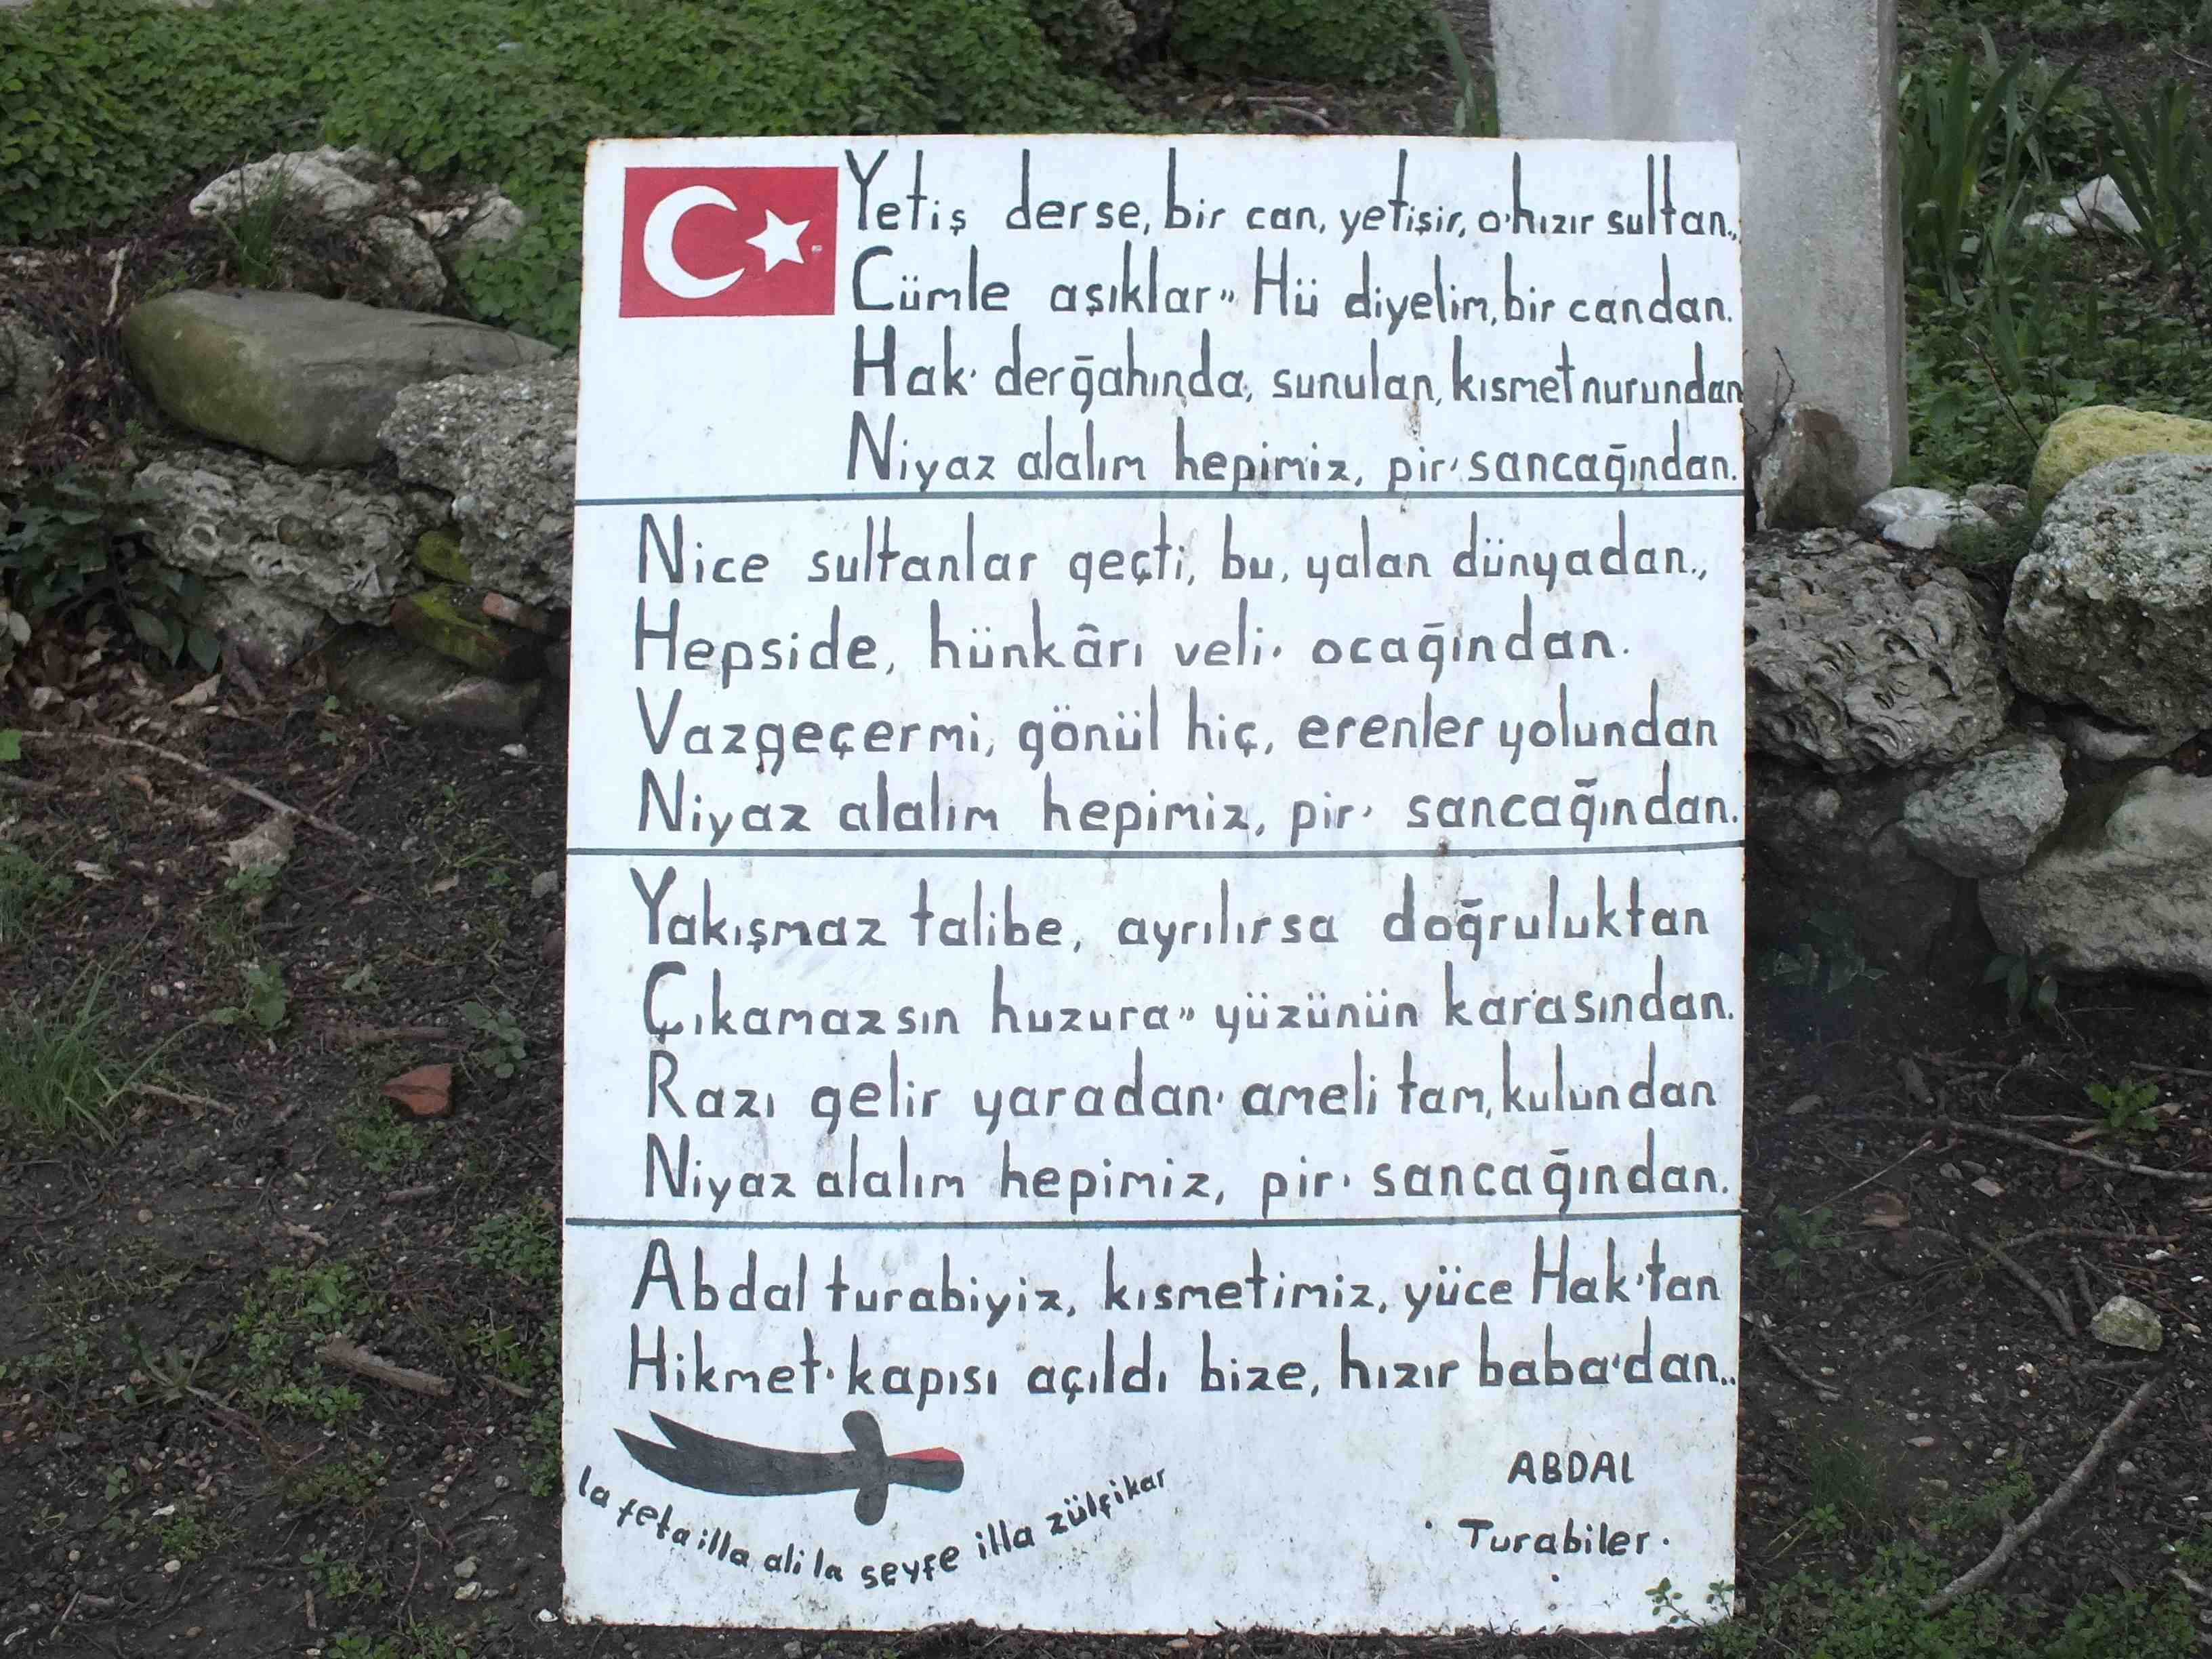 Yetiş derse, bir can, yetişir, o'hızır sultan.,
Cümle aşıklar,, Hü diyelim, bir candan.
Hak' derğahında, sunulan, kısmet nurundan
Niyaz alalım hepimiz, pir' sancağından.
Nice sultanlar geçti, bu, yalan dünyadan.,
Hepside, hünkârı veli' ocağından.
Vazgeçermi, gönül hiç, erenler yolundan
Niyaz alalım hepimiz, pir' sancağından.
Yakışmaz talibe, ayrılırsa doğruluktan
Çıkamazsın huzura,, yüzünün karasından.
Razı gelir yaradan' ameli tam, kulundan
Niyaz alalım hepimiz, pir' sancağından.
Abdal turabiyiz, kısmetimiz, yüce Hak'tan
Hikmet' kapısı açıldı bize, hızır baba'dan..
la feta illa ali la seyfe illa zülfikar
ABDAL
Turabiler